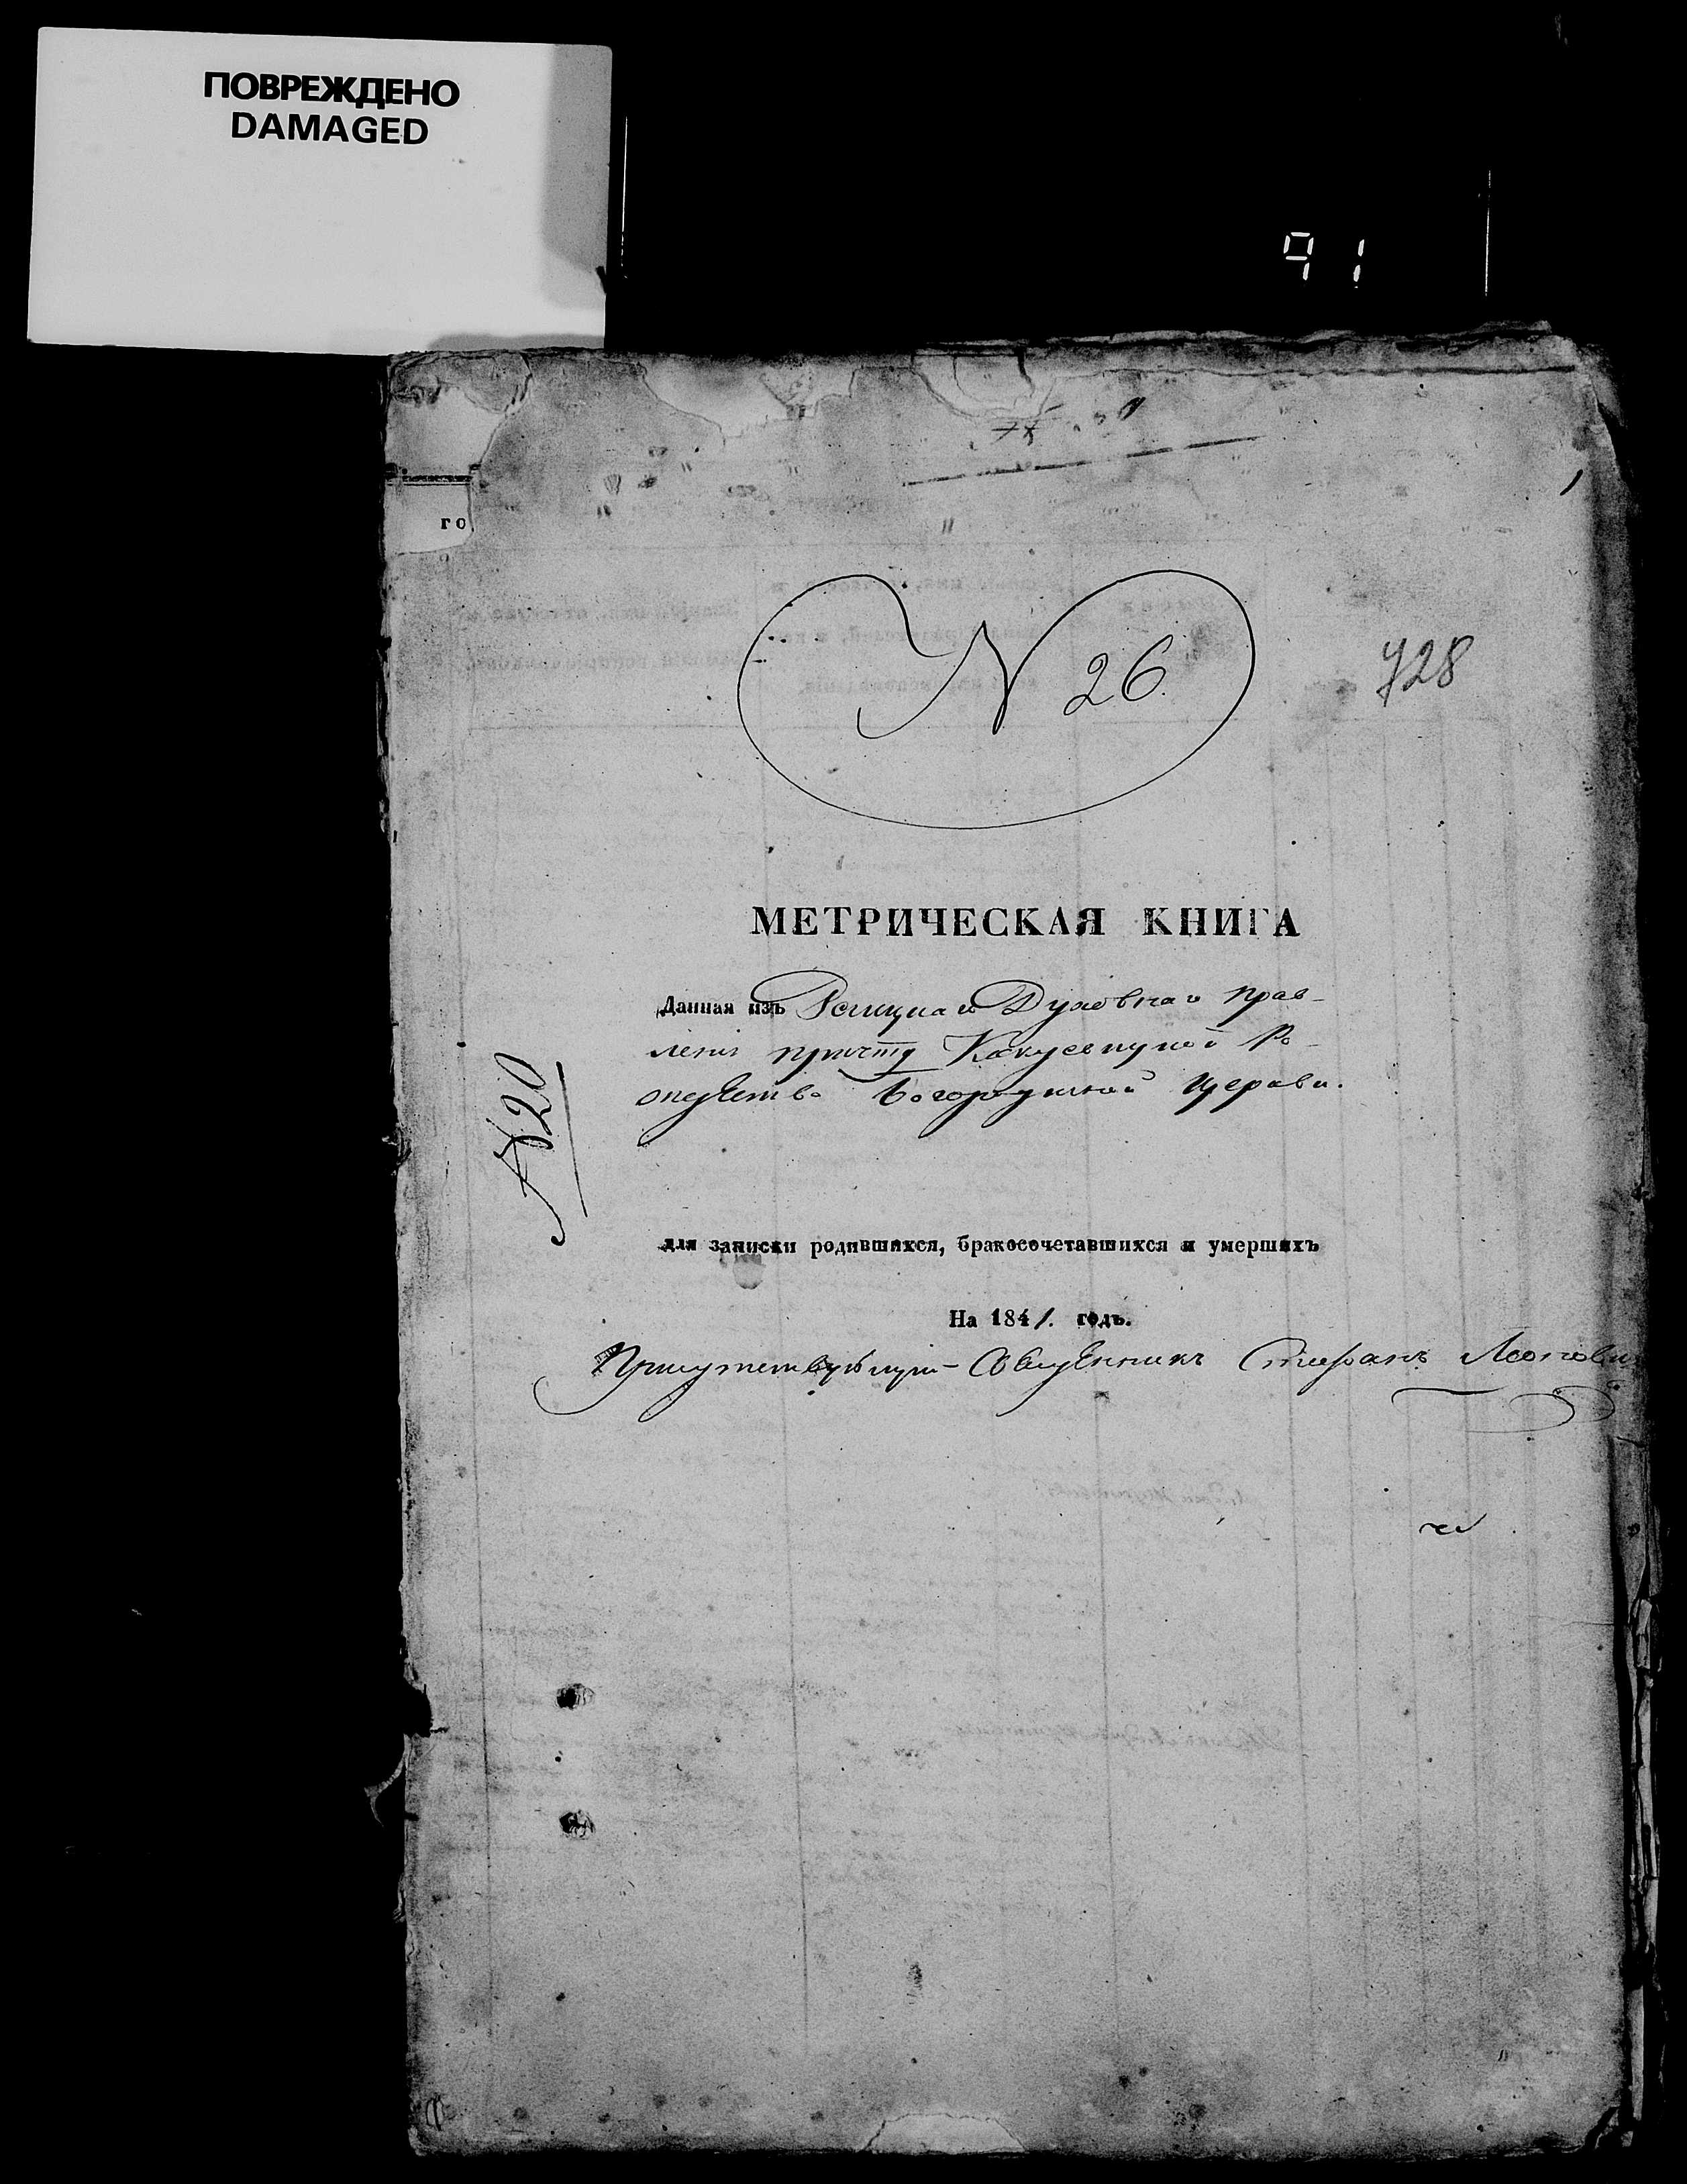 ПОВРЕЖДЕНО
DAMAGED
91
1
го
N 26.
728
МЕТРИЧЕСКАЯ КНИГА
Данная изъ Духовнаго прав-
ленія причту Ро-
ждество Богородичной Церкви.
№20
для записки родившихся, бракосочетавшихся и умершихъ
На 1841. годъ.
Присутствующій Священникъ Стефанъ